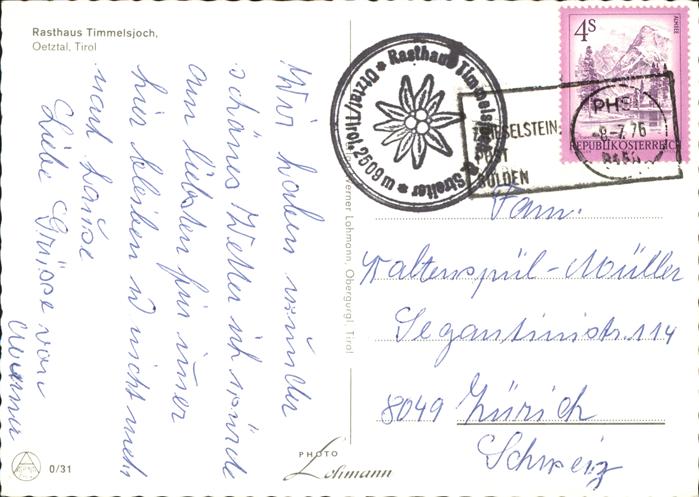 Rasthaus Timmelsjoch,
Oetztal, Tirol
Wir haben wunder
schönes Wetter ich würde
am liebsten für imer
hier bleiben u nicht mehr
nach Hause
Liebe Grüsse von
Rasthaus Timmelsjoch
Ötztal/Tirol, 2509 m
Streiter
4S
ALMSEE
REPUBLIK ÖSTERREICH
8-7.76
POST
SÖLDEN
Werner Lohmann, Obergurgl, Tirol
Fam.
Waltenspül-Müller
Segantinistr. 114
8049 Zürich
Schweiz
0/31
PHOTO
Lohmann